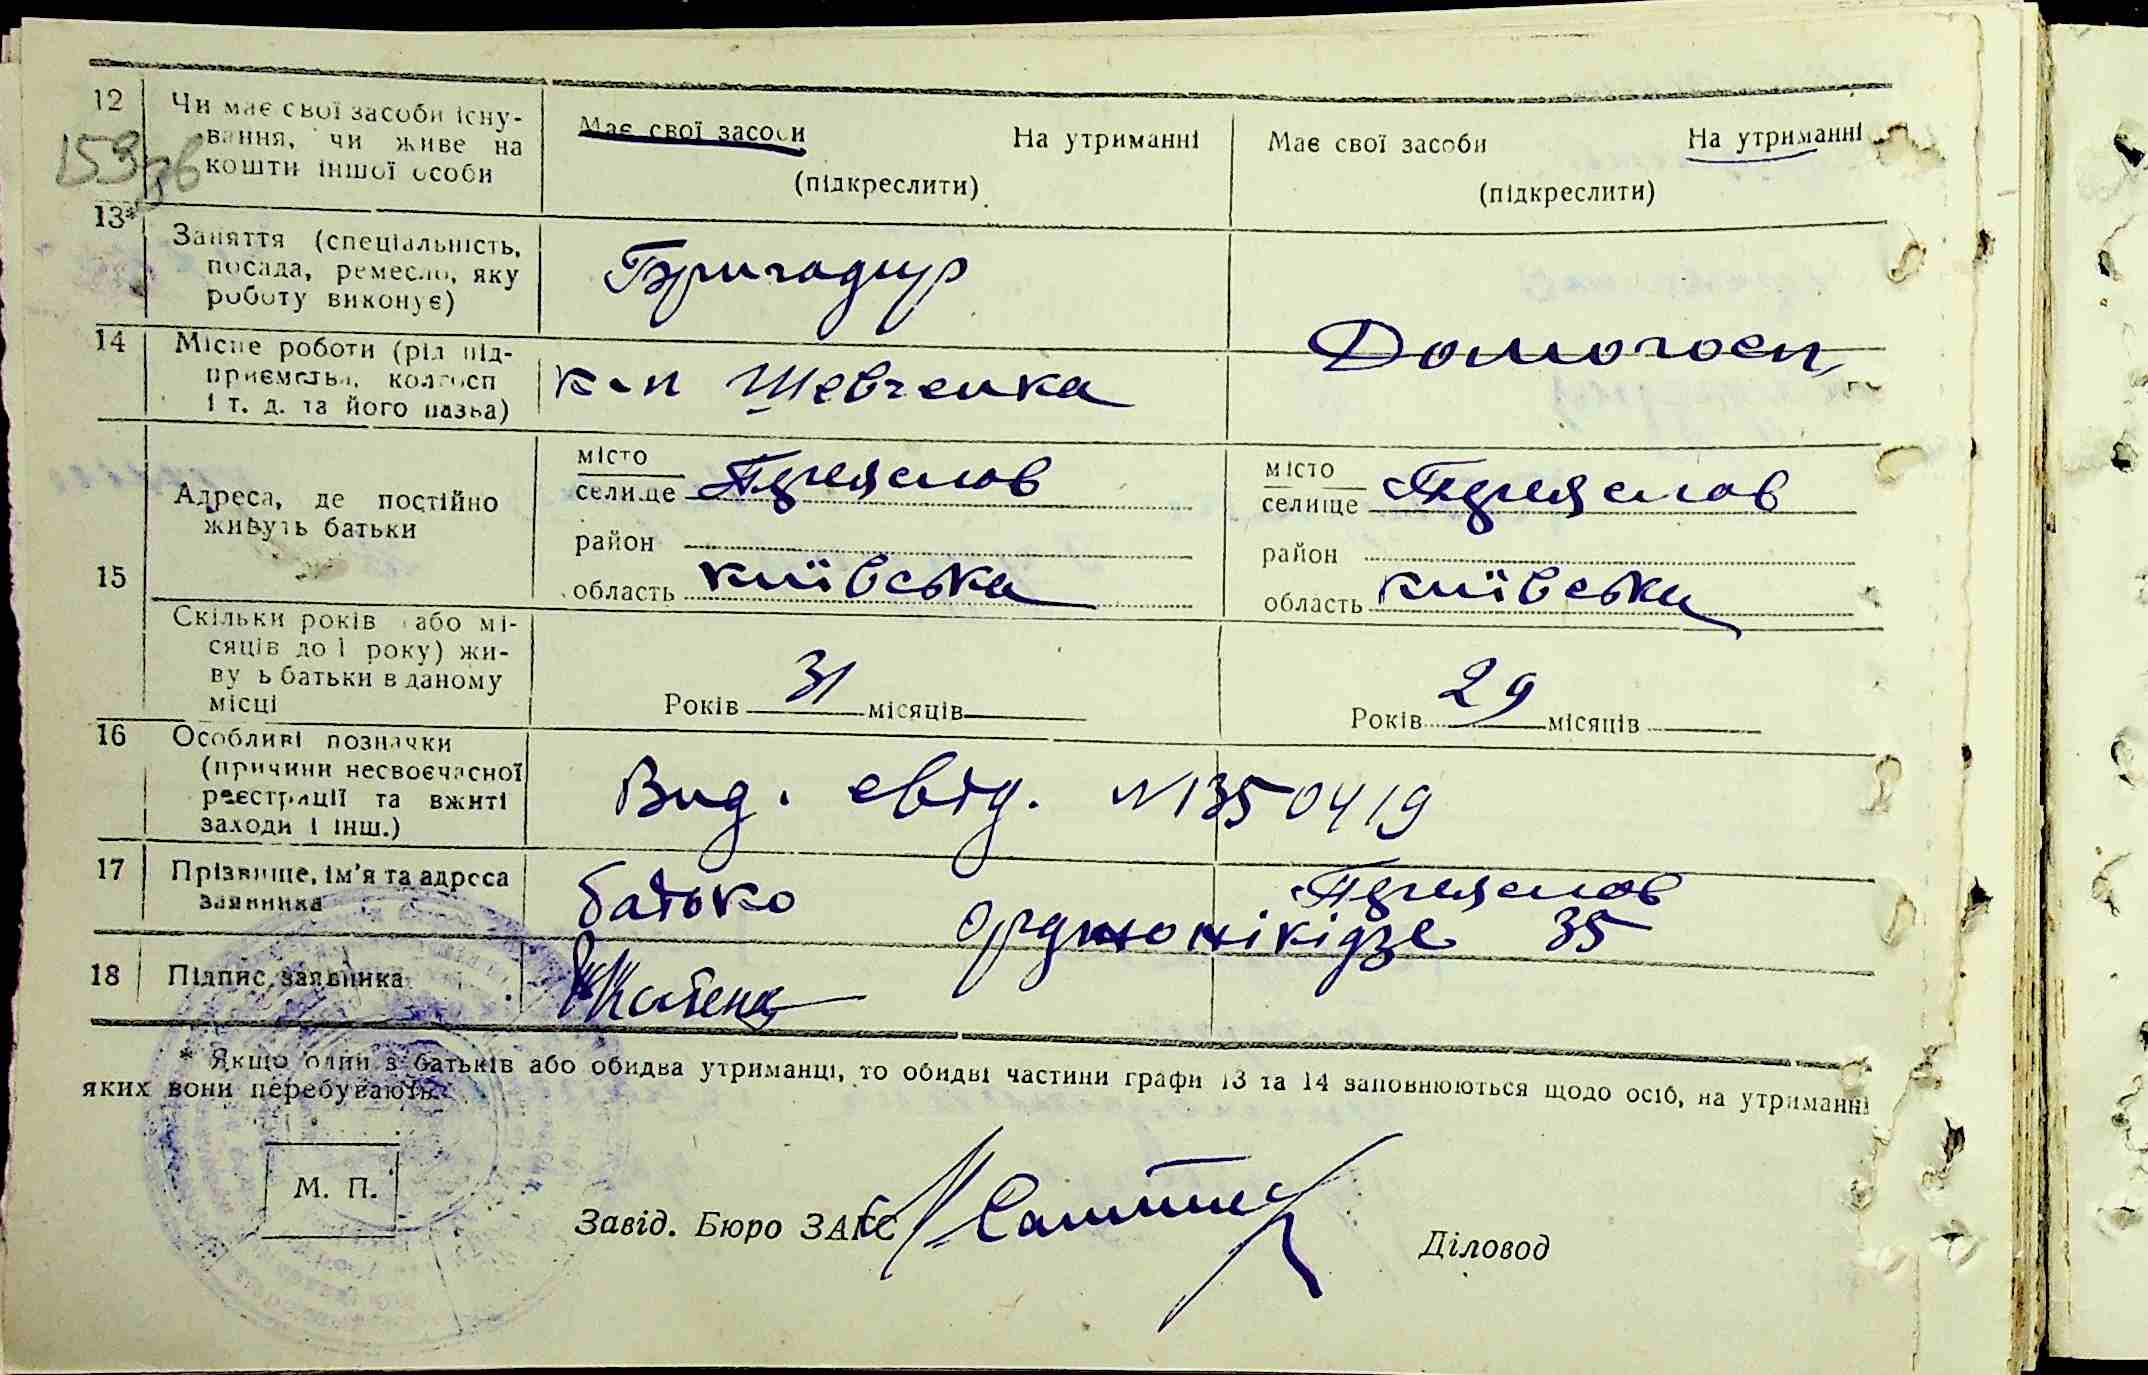 12
Чи має свої засоби існу-
вання, чи живе на
кошти іншої особи
Має свої засоби На утриманні
(підкреслити)
Має свої засоби На утриманні
(підкреслити)
153зв
13*
Заняття (спеціальність,
посада, ремесло, яку
роботу виконує)
Бригадир
14
Місце роботи (рід під-
приємства, колгосп
і т. д. та його назва)
к-п Шевченка
Домогосп.
15
Адреса, де постійно
живуть батьки
місто
селище Переяслов
район
область київська
місто
селище Переяслов
район
область київська
Скільки років або мі-
сяців до 1 року) жи-
ву ь батьки в даному
місці
Років 31 місяців
Років 29 місяців
16
Особливі позначки
(причини несвоєчасної
реєстрації та вжиті
заходи і інш.)
Вид. свід. №1350419
17
Прізвище, ім'я та адреса
заявника
батько Переяслов
Орджонікідзе 35
18
Підпис заявника
* Якщо один з батьків або обидва утриманці, то обидві частини графи 13 та 14 заповнюються щодо осіб, на утриманні
яких вони перебувають.
М. П.
Завід. Бюро ЗАГС
Діловод